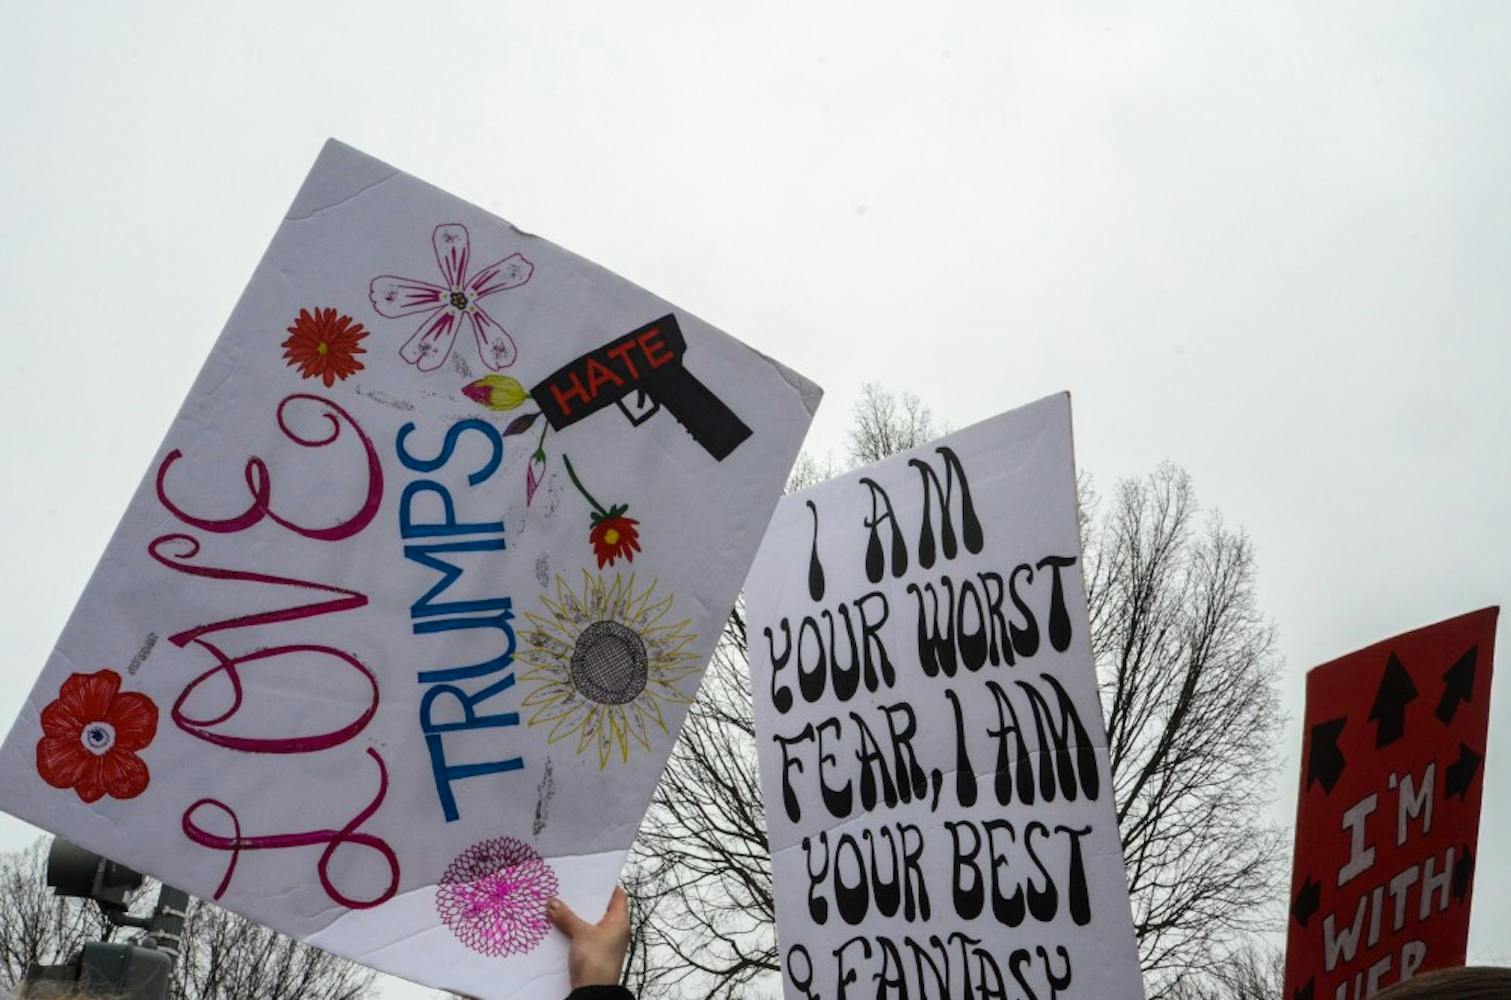 LOVE
TRUMPS
HATE
I AM
YOUR WORST
FEAR, I AM
YOUR BEST
FANTASY
I'M
WITH
HER